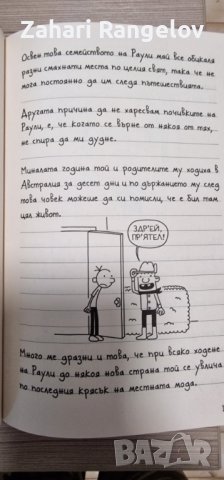 Zahari Rangelov
Освен това семейството на Раули май все обикаля
разни смахнати места по целия свят, така че не
мога постоянно да им следя пътешествията.
Другата причина да не харесвам почивките на
Раули, е, че когато се върне от някоя от тях,
не спира да ми дудне.
Миналата година той и родителите му ходиха в
Австралия за десет дни и по държанието му след
това човек можеше да си помисли, че е бил там
цял живот.
ЗДР'ЕЙ,
ПР'ЯТЕЛ!
Много ме дразни и това, че при всяко ходене
на Раули до някоя нова страна той се увлича
по последния крясък на местната мода.
BAZAR
bg